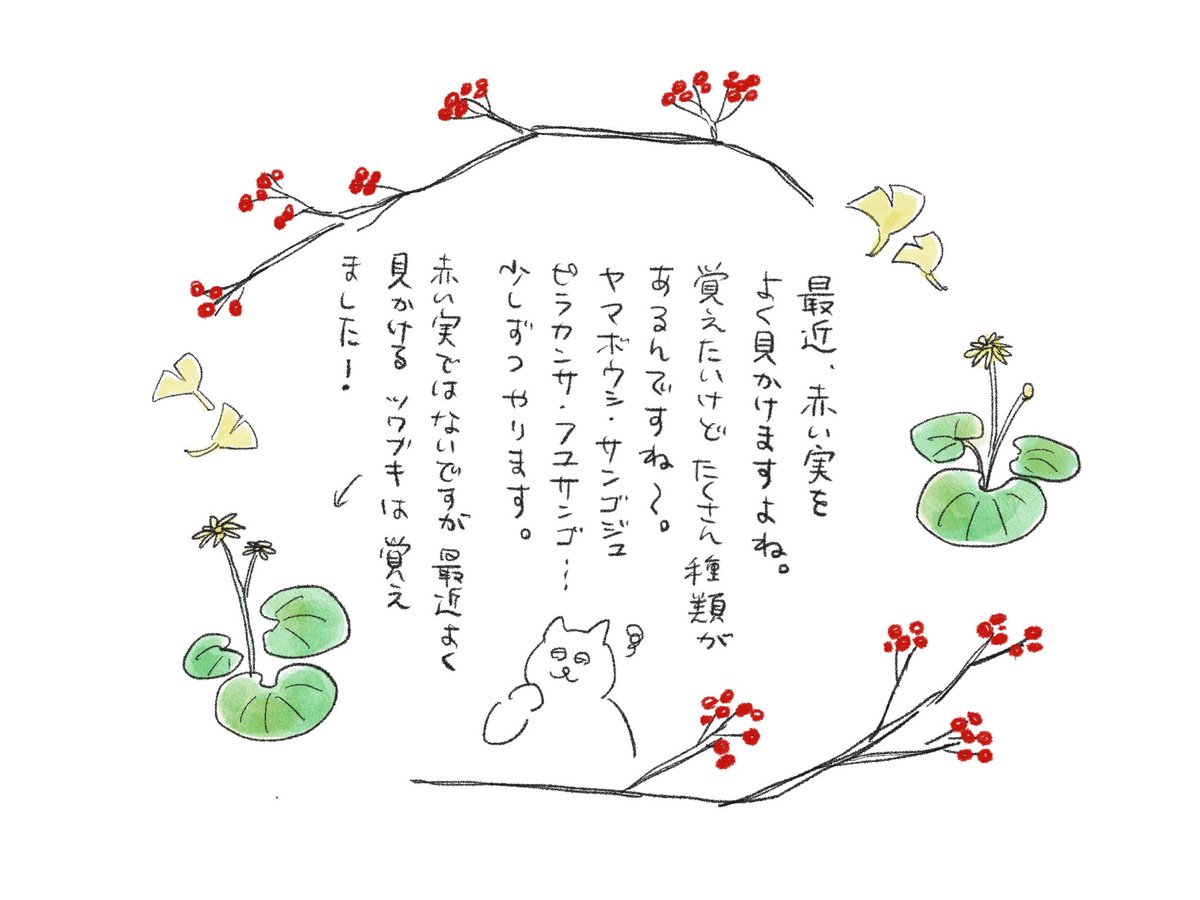 最近、赤い実を
よく見かけますよね。
覚えたいけど たくさん種類が
あるんですね〜。
ヤマボウシ・サンゴジュ
ピラカンサ・フユサンゴ…
少しずつやります。
赤い実ではないですが 最近よく
見かける ツワブキは 覚え
ました!